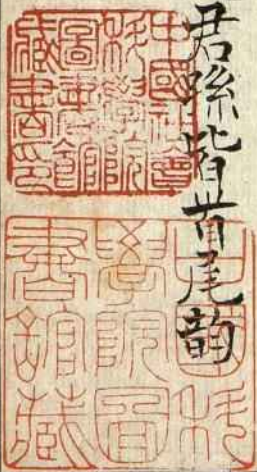 君皆首尾韵
中國社會
科學院
圖書館
藏書印
中國科
學院圖
書館藏